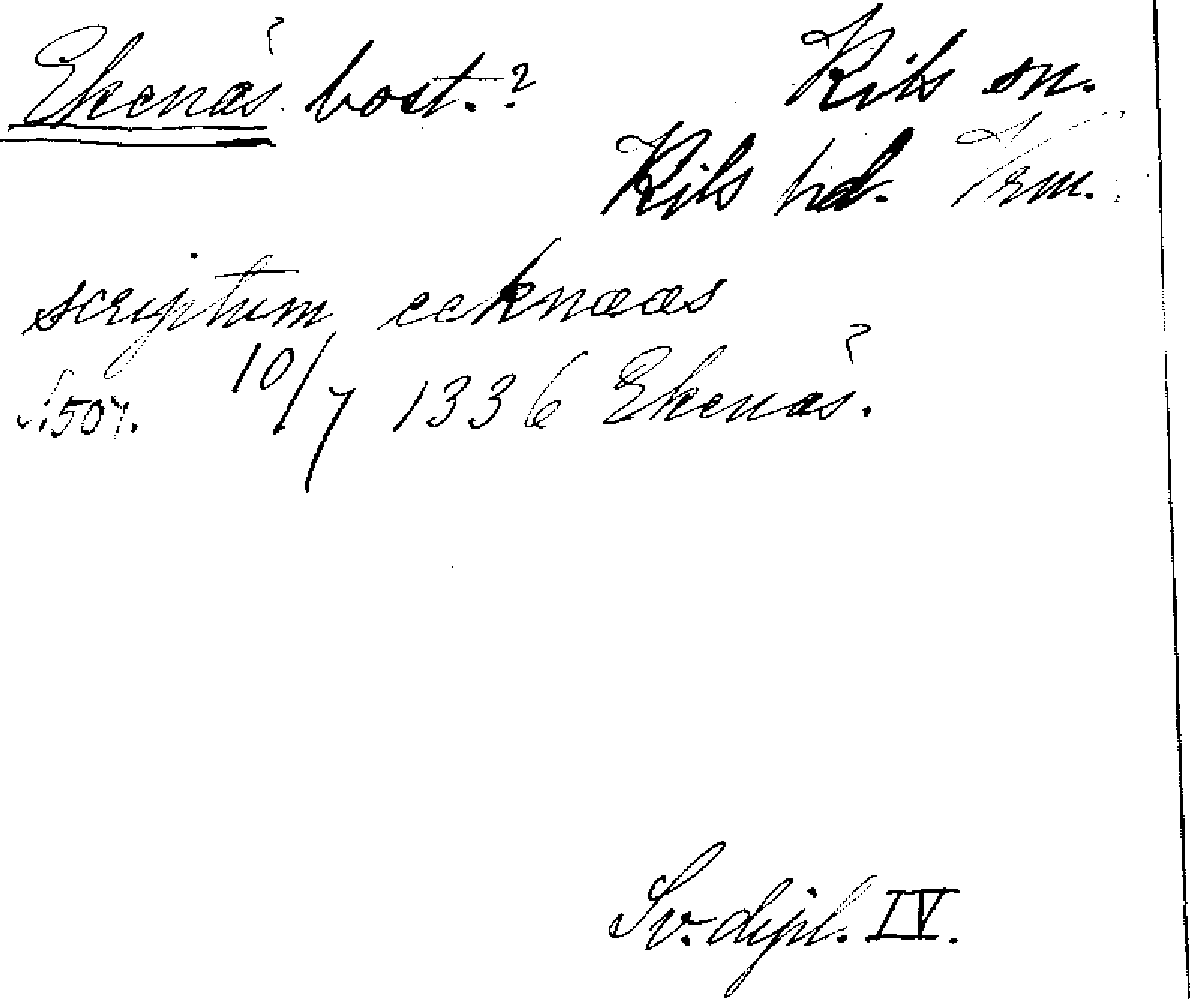 Ekenäs bost.? Kils sn.
Kils hd. Vrm.
scriptum eeknæs
s. 507. 10/7 1336 Ekenäs.
Sv. dipl. IV.